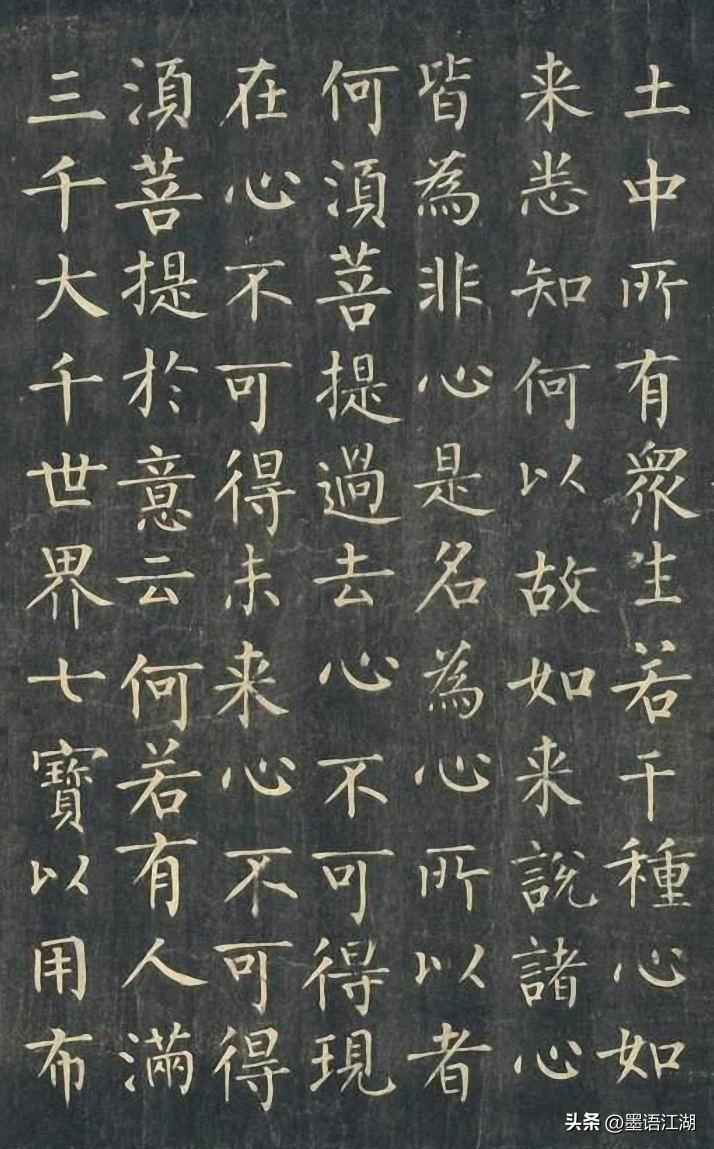 土中所有衆生若干種心如
来悉知何以故如来説諸心
皆為非心是名為心所以者
何須菩提過去心不可得現
在心不可得未来心不可得
須菩提於意云何若有人滿
三千大千世界七寶以用布
头条 @墨语江湖